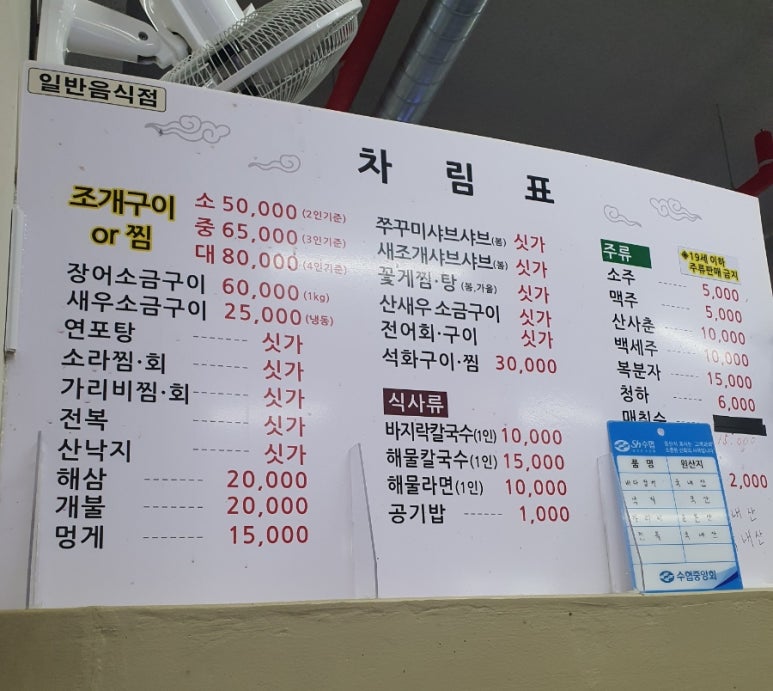 일반음식점
차 림 표
조개구이 or 찜
소 50,000 (2인기준)
중 65,000 (3인기준)
대 80,000 (4인기준)
장어소금구이 60,000 (1kg)
새우소금구이 25,000 (냉동)
연포탕 -------- 싯가
소라찜·회 -------- 싯가
가리비찜·회 -------- 싯가
전복 -------- 싯가
산낙지 -------- 싯가
해삼 -------- 20,000
개불 -------- 20,000
멍게 -------- 15,000
쭈꾸미샤브샤브(봄) 싯가
새조개샤브샤브(봄) 싯가
꽃게찜·탕 (봄,가을) 싯가
산새우소금구이 싯가
전어회·구이 싯가
석화구이·찜 30,000
식사류
바지락칼국수(1인) 10,000
해물칼국수(1인) 15,000
해물라면(1인) 10,000
공기밥 ----- 1,000
주류
◈19세 이하
주류판매 금지
소주 ----- 5,000
맥주 ----- 5,000
산사춘 ----- 10,000
백세주 ----- 10,000
복분자 ----- 15,000
청하 ----- 6,000
매취순
15,000
2,000
Sh수협
품 명 원산지
국내산
수협중앙회